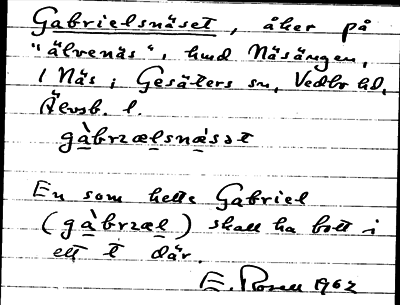 Gabrielsnäset, åker på
"älvenäs", hmd Näsängen,
1 Näs i Gesäters sn, Vedbo hd,
Älvsb. l.
gàbrzælsnæ̀sət
En som hette Gabriel
(gàbrzæl) skall ha bott i
ett t där.
E. Rosell 1962